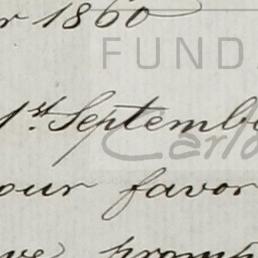 r 1860
FUND
1st. Septemb
Carlo
our favor
ve promp